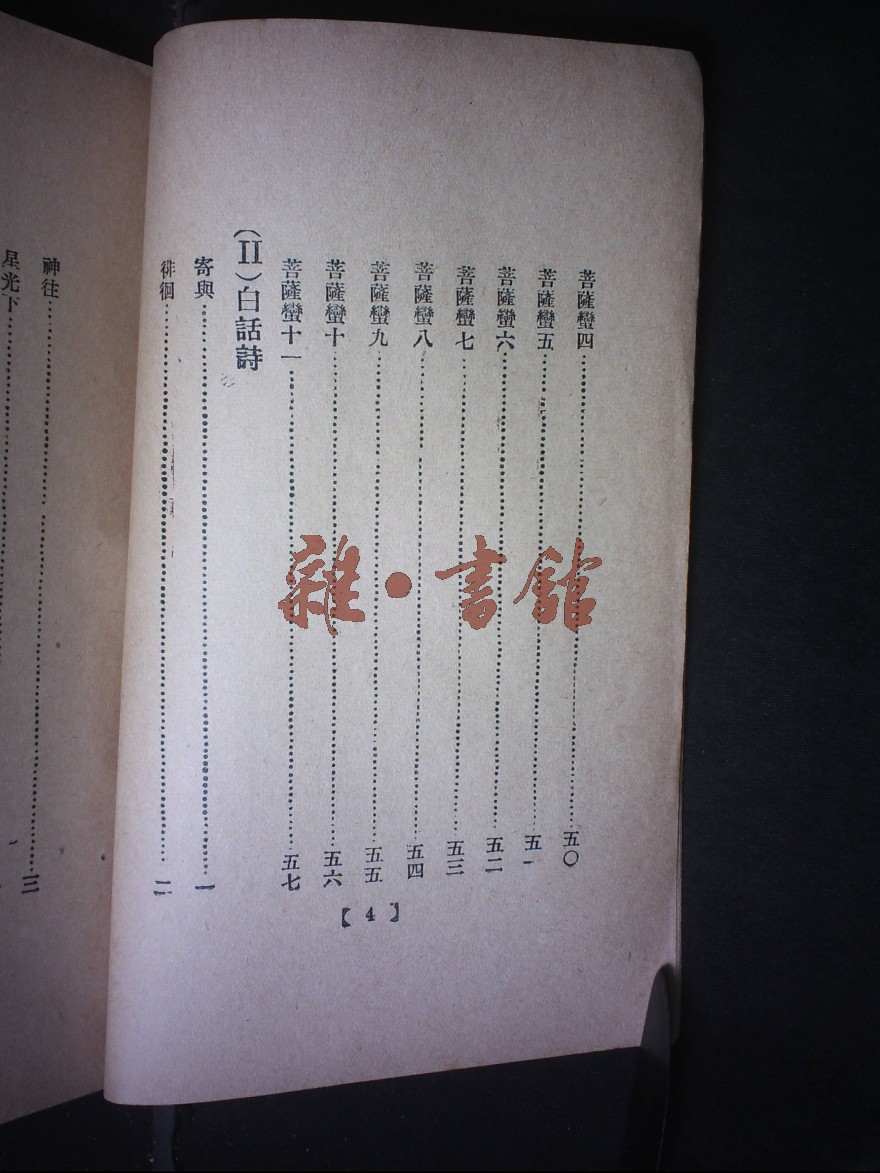 菩薩蠻四……五〇
菩薩蠻五……五一
菩薩蠻六……五二
菩薩蠻七……五三
菩薩蠻八……五四
菩薩蠻九……五五
菩薩蠻十……五六
菩薩蠻十一……五七
（II）白話詩
寄與……一
徘徊……二
【4】
神往……三
星光下……
雜·書館